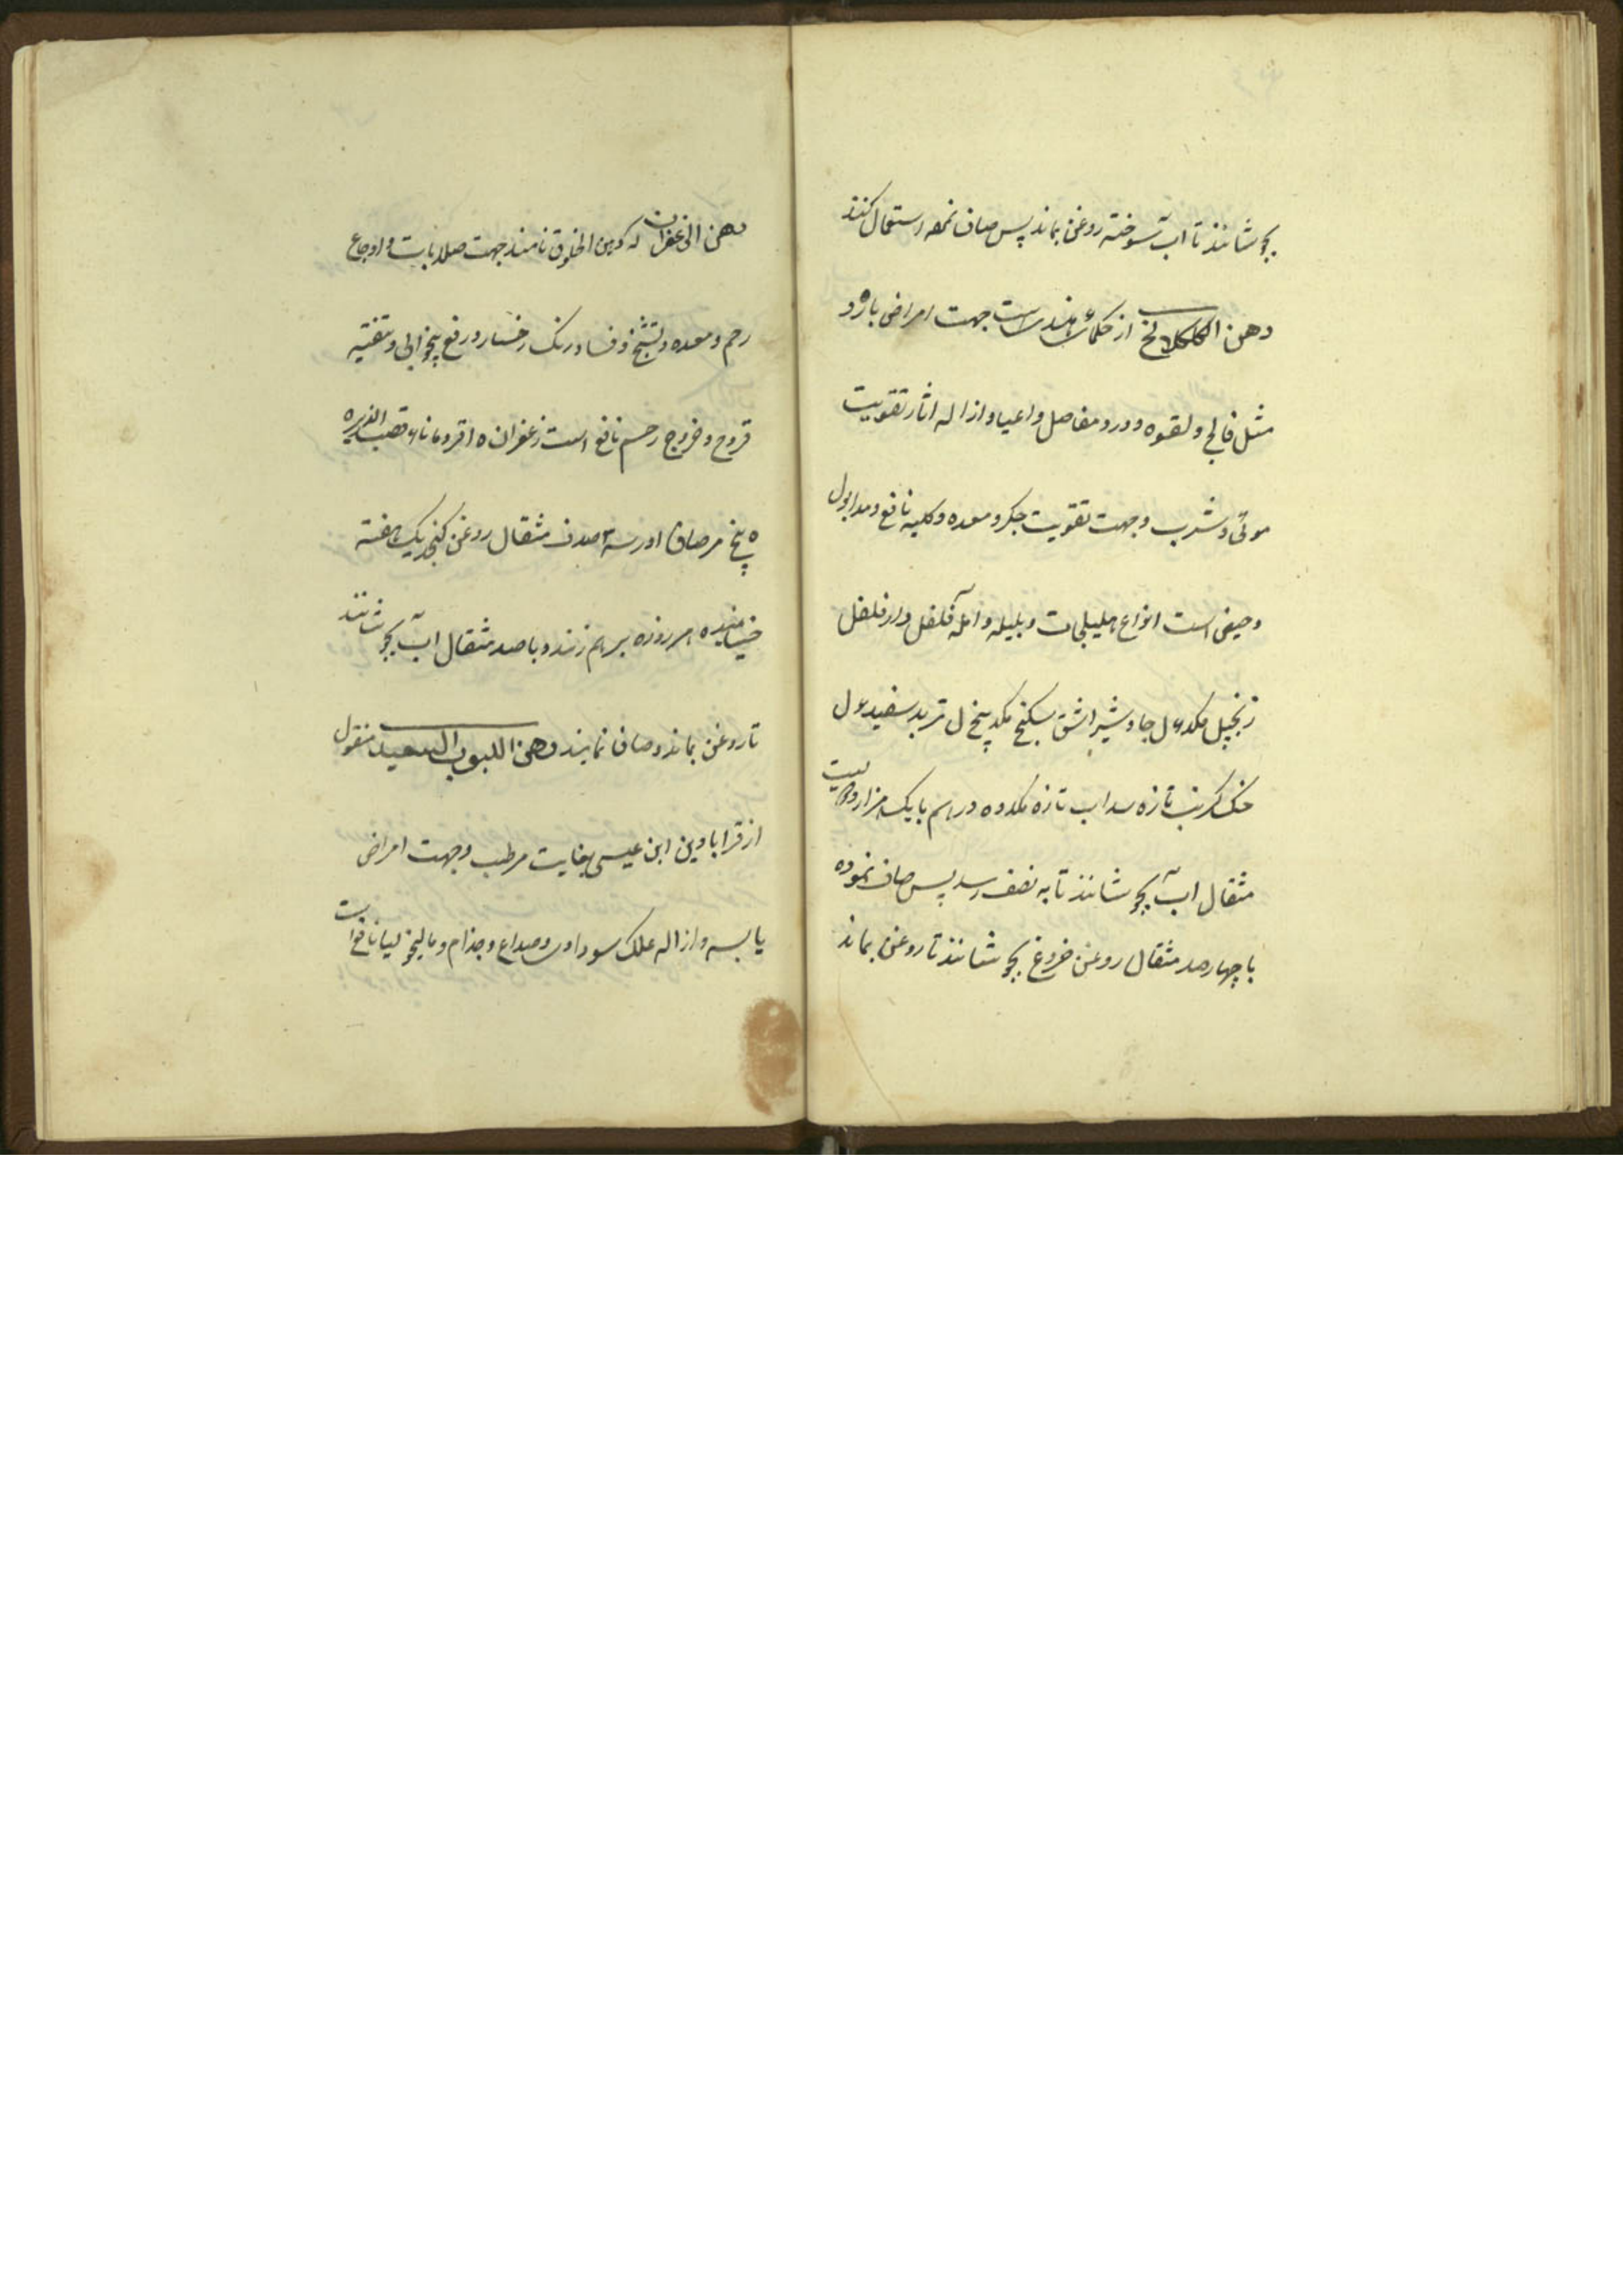 بجوشانند تا آب سوخته روغن بماند پس صاف نموده استعمال کنند
دهن الکلکلانج از حکمای هند است جهت امراض بارد
مثل فالج و لقوه و درد مفاصل و اعیا و ازاله اثار تقویت
موی و شرب و جهت تقویت جکر و معده و کلیه نافع و مدر بول
و حیض است انواع هلیلجات و بلیله و آمله فلفل دارفلفل
زنجبیل مکد ل جاوشیر اشق سکبینج مکد پنج ل تربد سفید ل
خنک کرنب تازه سداب تازه مکد ده درهم با یک هزار و دویست
مثقال آب بجوشانند تا به نصف رسد پس صاف نموده
با چهارصد مثقال روغن خروع بجوشانند تا روغن بماند
دهن الزعفران که دهن الخلوق نامند جهت صلابات و اوجاع
رحم و معده و تشنج و فساد رنک رخسار و رفع بیخوابی و تنقیه
قروح و خروج رحم نافع است زعفران ه قردمانا قصب الذریره
ه پنج مر صاف در سه صد مثقال روغن کنجد یک هفته
خیسانیده هر روزه بر هم زنند و با صد مثقال آب بجوشانند
تا روغن بماند و صاف نمایند دهن اللبوب السعید منقول
از قرابادین ابن عیسی بغایت مرطب و جهت امراض
یابسه و ازاله علل سوداوی و صداع و جذام و مالیخولیا نافع است